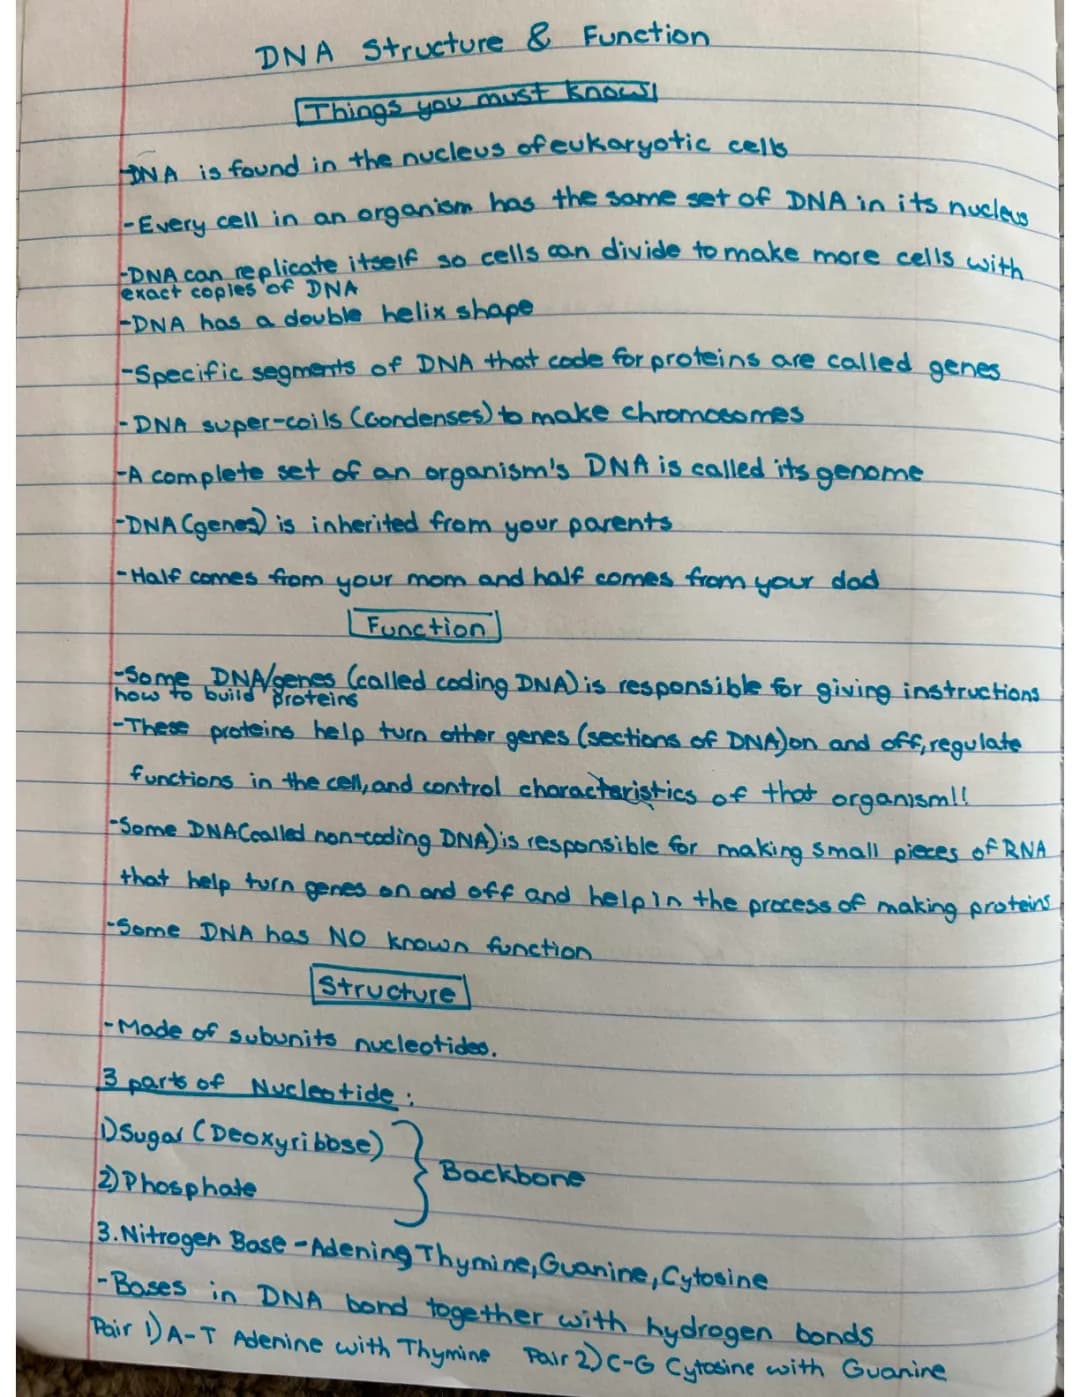 DNA Structure & Function
Things you must know!
-DNA is found in the nucleus of eukaryotic cells
-Every cell in an organism has the same set of DNA in its nucleus
-DNA can replicate itself so cells can divide to make more cells with
exact copies of DNA
-DNA has a double helix shape
-Specific segments of DNA that code for proteins are called genes
-DNA super-coils (condenses) to make chromosomes
-A complete set of an organism's DNA is called its genome
-DNA (genes) is inherited from your parents
-Half comes from your mom and half comes from your dad
Function
-Some DNA/genes (called coding DNA) is responsible for giving instructions
how to build proteins
-These proteins help turn other genes (sections of DNA) on and off, regulate
functions in the cell, and control characteristics of that organism!!
-Some DNA (called non-coding DNA) is responsible for making small pieces of RNA
that help turn genes on and off and help in the process of making proteins
-Some DNA has NO known function
Structure
-Made of subunits nucleotides.
3 parts of Nucleotide:
1) Sugar (Deoxyribose)
Backbone
2) Phosphate
3. Nitrogen Base - Adening Thymine, Guanine, Cytosine
-Bases in DNA bond together with hydrogen bonds
Pair 1) A-T Adenine with Thymine Pair 2) C-G Cytosine with Guanine